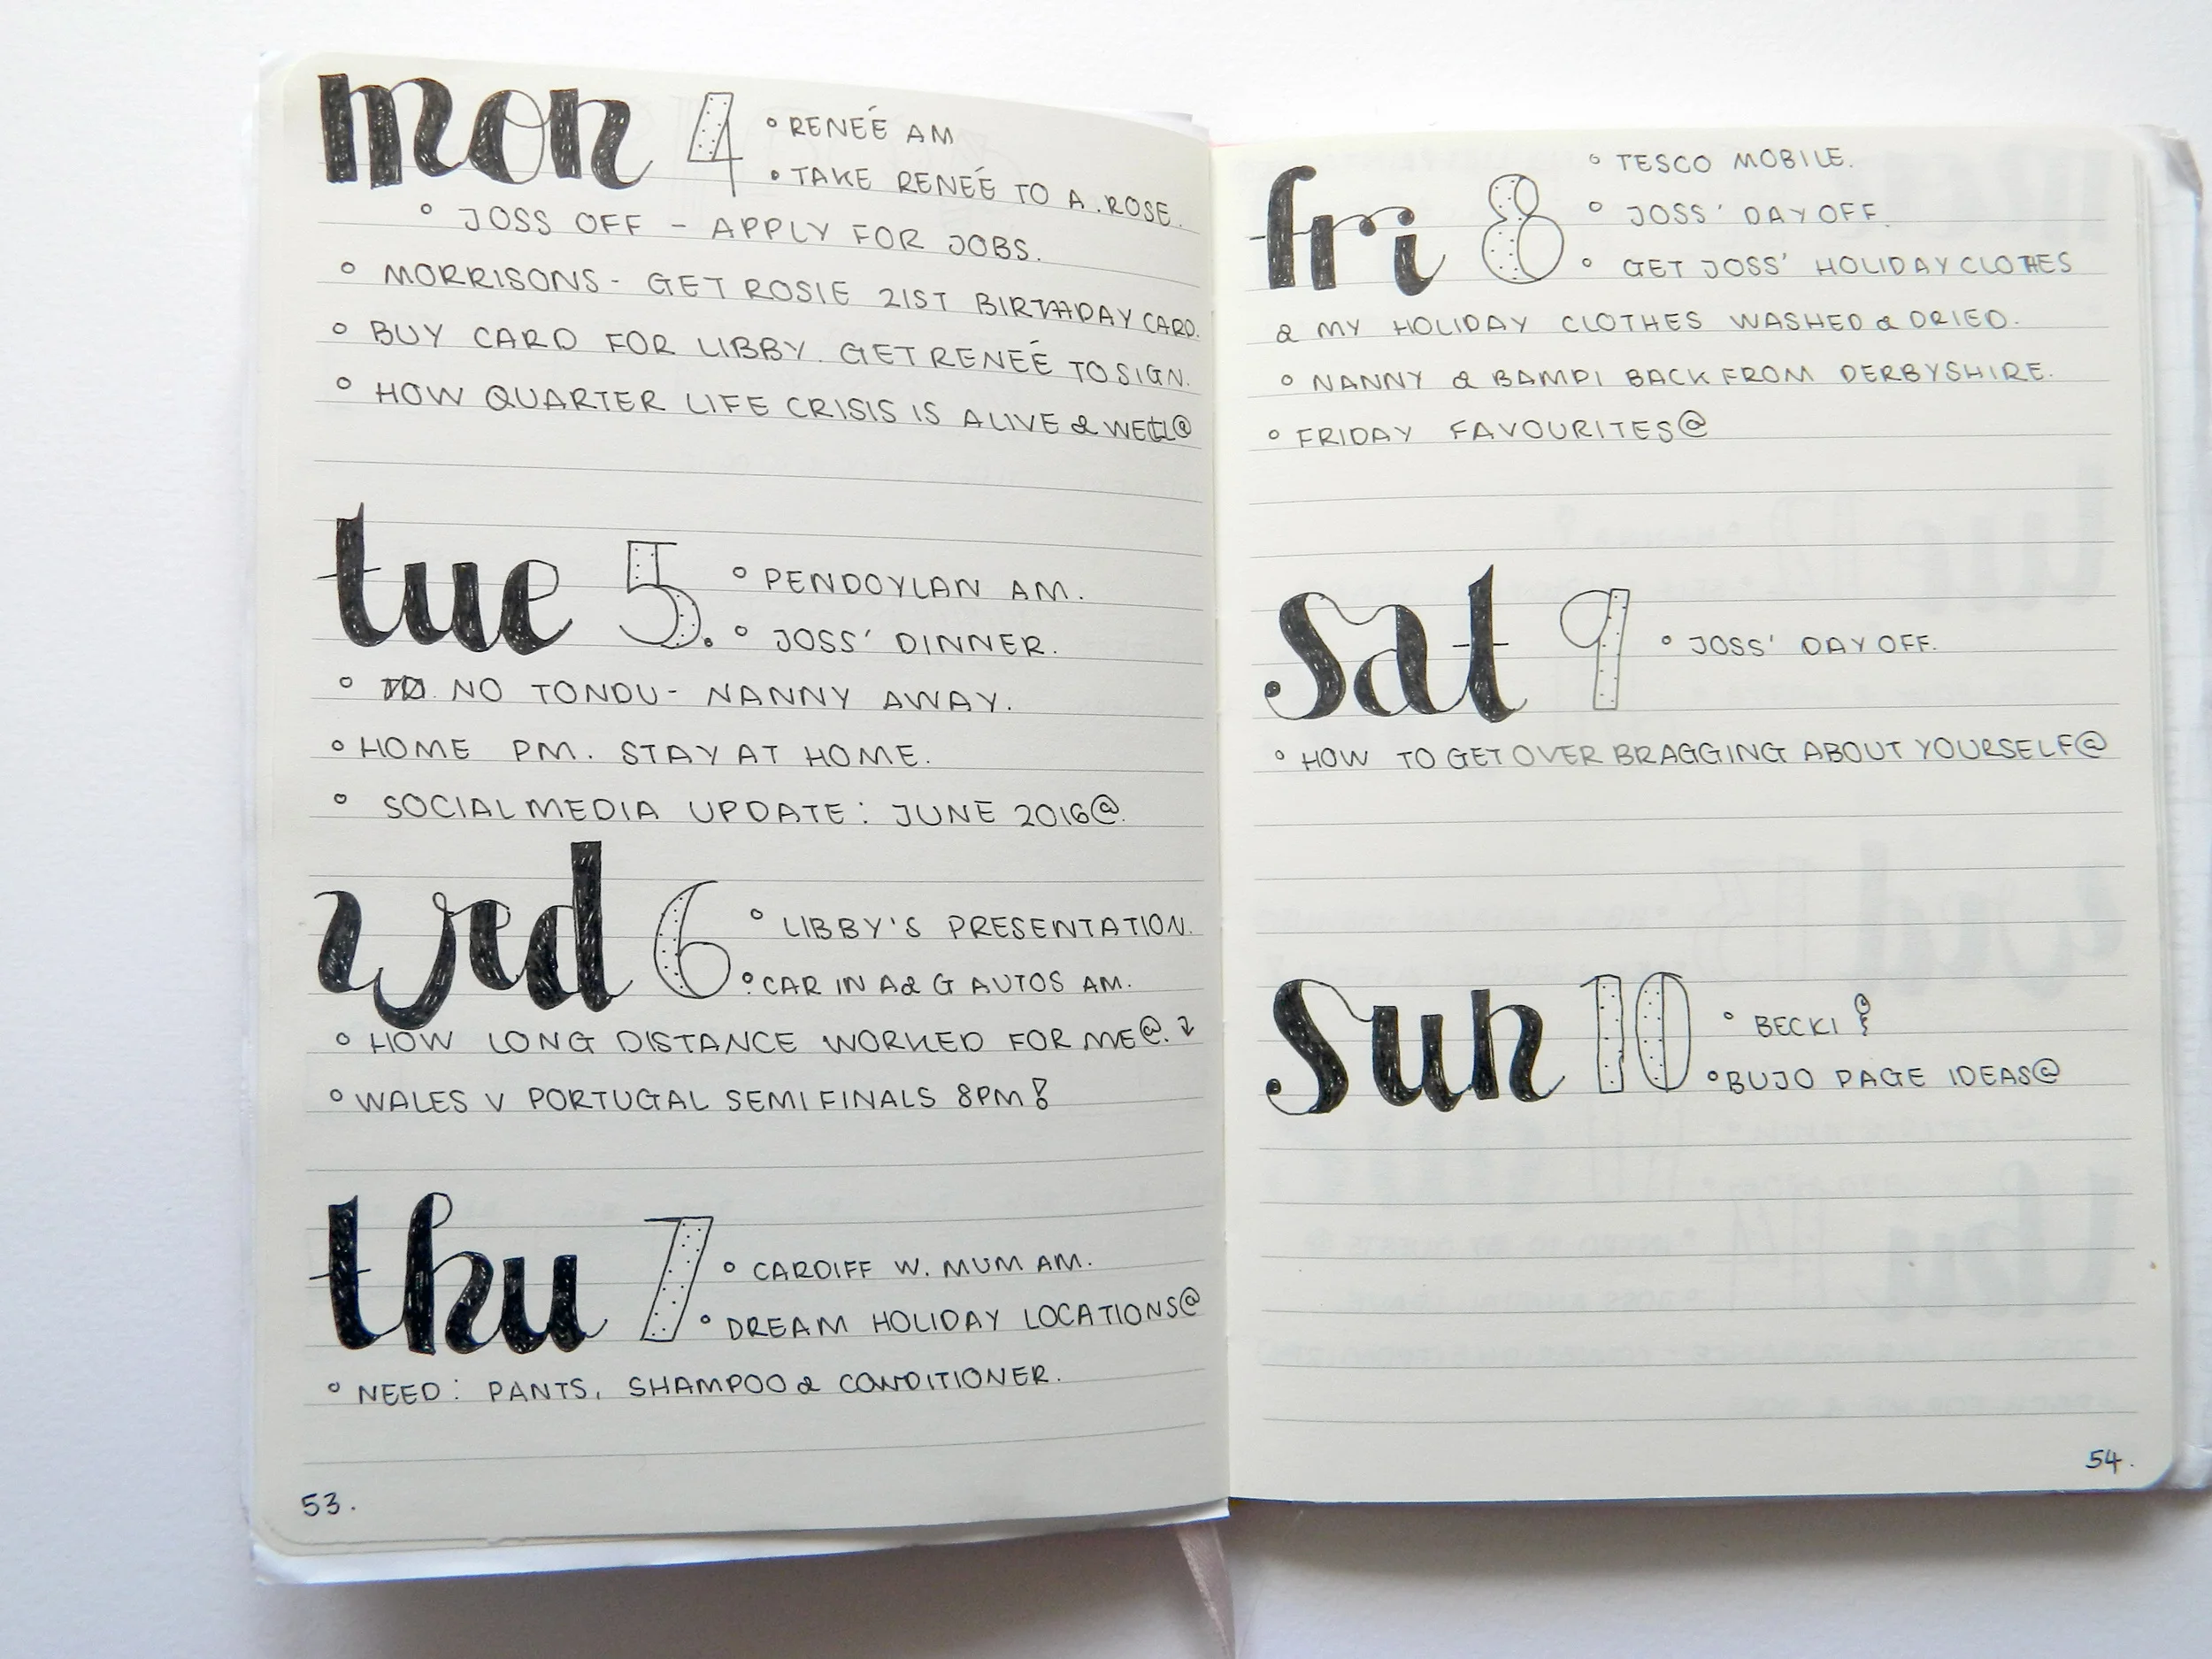 mon 4
° RENEÉ AM
• TAKE RENEÉ TO A.ROSE.
° JOSS OFF - APPLY FOR JOBS.
° MORRISONS - GET ROSIE 21ST BIRTHDAY CARD.
° BUY CARD FOR LIBBY. GET RENEÉ TO SIGN.
° HOW QUARTER LIFE CRISIS IS ALIVE & WELL@
tue 5.
° PENDOYLAN AM.
° JOSS' DINNER.
° NO TONDU - NANNY AWAY.
° HOME PM. STAY AT HOME.
° SOCIAL MEDIA UPDATE: JUNE 2016@.
wed 6
° LIBBY'S PRESENTATION.
° CAR IN A & G AUTOS AM.
° HOW LONG DISTANCE WORKED FOR ME@.
° WALES V PORTUGAL SEMI FINALS 8PM!
thu 7
° CARDIFF W. MUM AM.
° DREAM HOLIDAY LOCATIONS@
° NEED: PANTS, SHAMPOO & CONDITIONER.
53.
fri 8
° TESCO MOBILE.
° JOSS' DAY OFF.
° GET JOSS' HOLIDAY CLOTHES
& MY HOLIDAY CLOTHES WASHED & DRIED.
° NANNY & BAMPI BACK FROM DERBYSHIRE.
° FRIDAY FAVOURITES@
sat 9
° JOSS' DAY OFF.
° HOW TO GET OVER BRAGGING ABOUT YOURSELF@
sun 10
° BECKI
° BUJO PAGE IDEAS@
54.